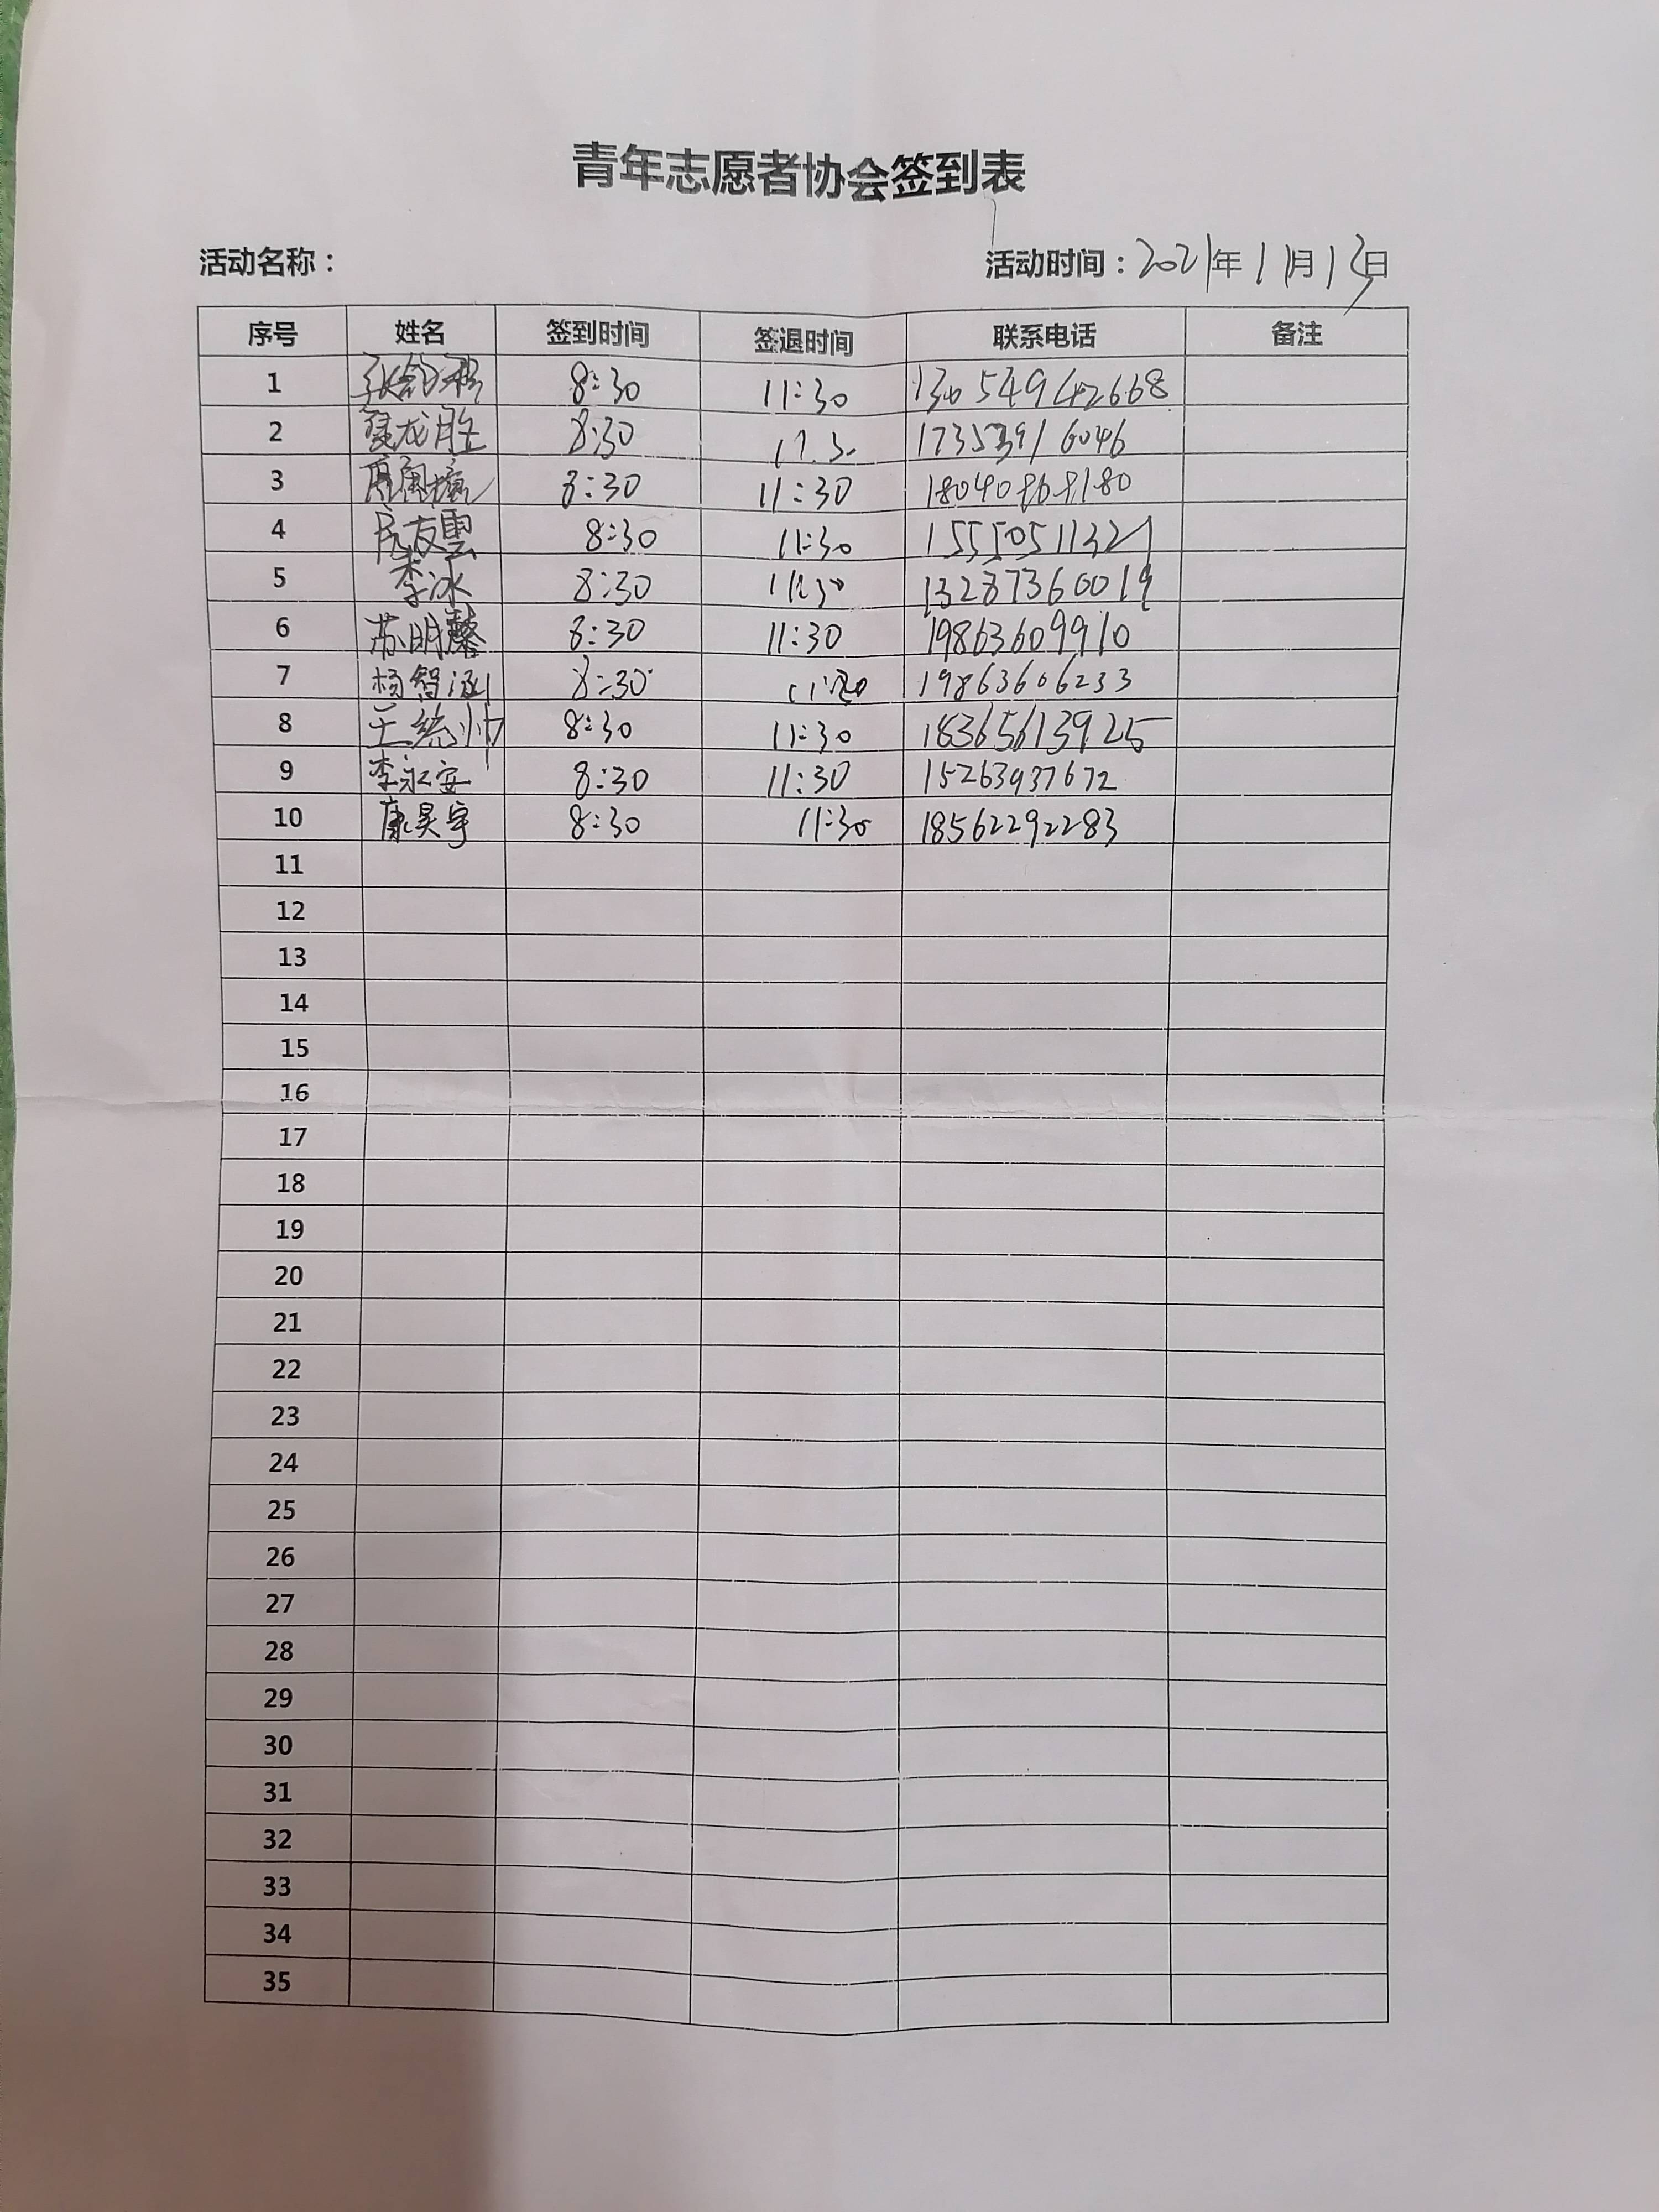 青年志愿者协会签到表
活动名称： 活动时间：2021年11月13日
序号 姓名 签到时间 签退时间 联系电话 备注
1 8:30 11:30 13054942668
2 龙胜 8:30 11:30
3 8:30 11:30 18040868180
4 房友雲 8:30 11:30 15550511321
5 李冰 8:30 11:30 13287360019
6 苏明馨 8:30 11:30 19863609910
7 杨智涵 8:30 11:30 19863606233
8 王统帅 8:30 11:30 18365613925
9 李永安 8:30 11:30 15263937672
10 康昊宇 8:30 11:30 18562292283
11
12
13
14
15
16
17
18
19
20
21
22
23
24
25
26
27
28
29
30
31
32
33
34
35